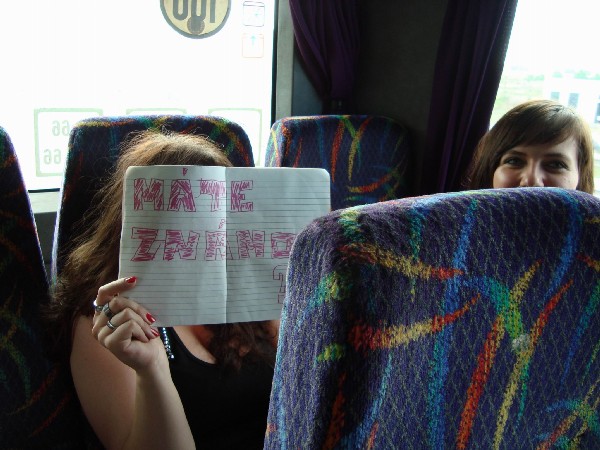 MÁTE
ZNÁNO
?